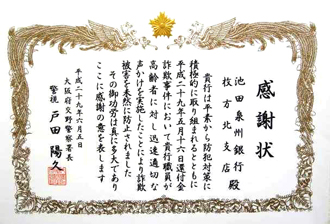 感謝状
池田泉州銀行
枚方北支店 殿
貴行は平素から防犯対策に
積極的に取り組まれるとともに
平成二十九年五月十六日還付金
詐欺事件において貴行職員が
高齢者に対し迅速適切な
声かけを実施したことにより詐欺
被害を未然に防止されました
その御功労は真に多大であり
ここに感謝の意を表します
平成二十九年六月五日
大阪府交野警察署長
警視 戸田陽久